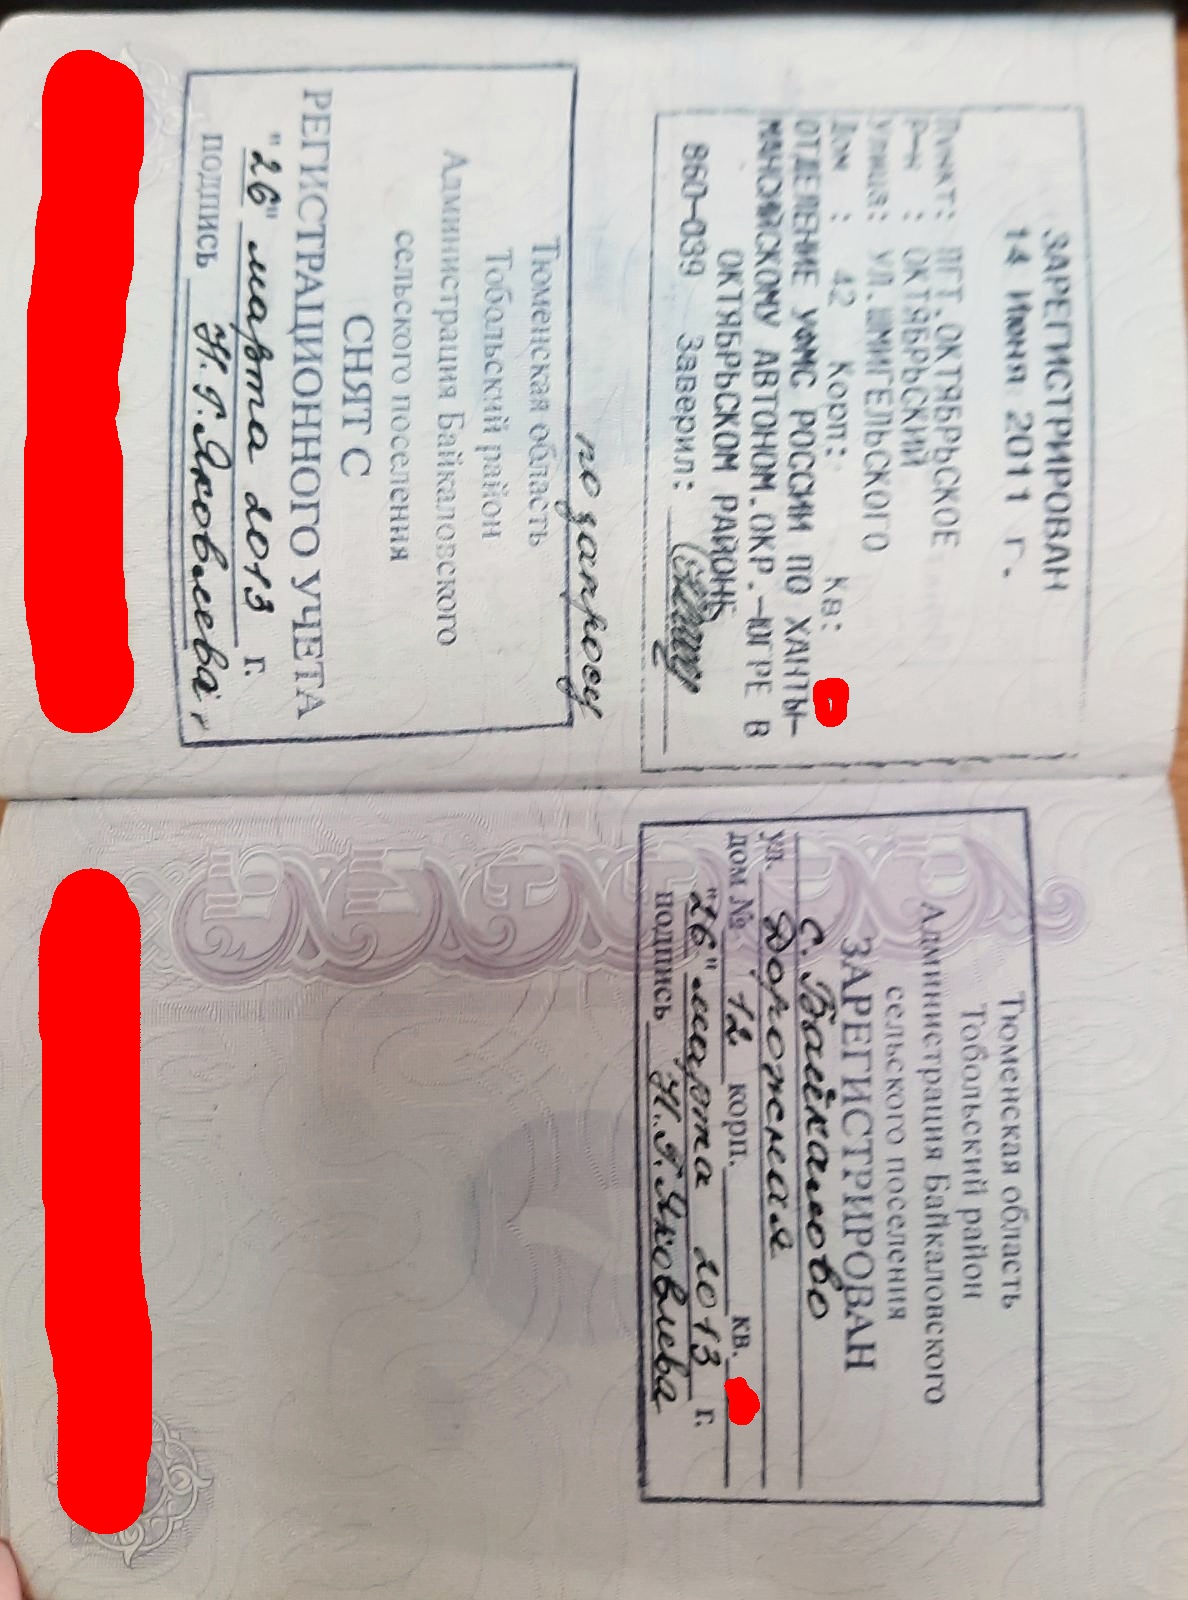 ЗАРЕГИСТРИРОВАН
14 Июня 2011 г.
Пункт: ПГТ.ОКТЯБРЬСКОЕ
Р-н : ОКТЯБРЬСКИЙ
Улица: УЛ.ШМИГЕЛЬСКОГО
Дом : 42 Корп: КВ:
ОТДЕЛЕНИЕ УФМС РОССИИ ПО ХАНТЫ-
МАНСИЙСКОМУ АВТОНОМ.ОКР.-ЮГРЕ В
ОКТЯБРЬСКОМ РАЙОНЕ
860-039 Заверил:
по запросу
Тюменская область
Тобольский район
Администрация Байкаловского
сельского поселения
СНЯТ С
РЕГИСТРАЦИОННОГО УЧЕТА
"26" марта 2013 г.
подпись Н.Г.Яковлева
Тюменская область
Тобольский район
Администрация Байкаловского
сельского поселения
ЗАРЕГИСТРИРОВАН
с. Байкалово
ул. Дорожная
дом № 12 корп. кв.
"26" марта 2013 г.
подпись Н.Г.Яковлева